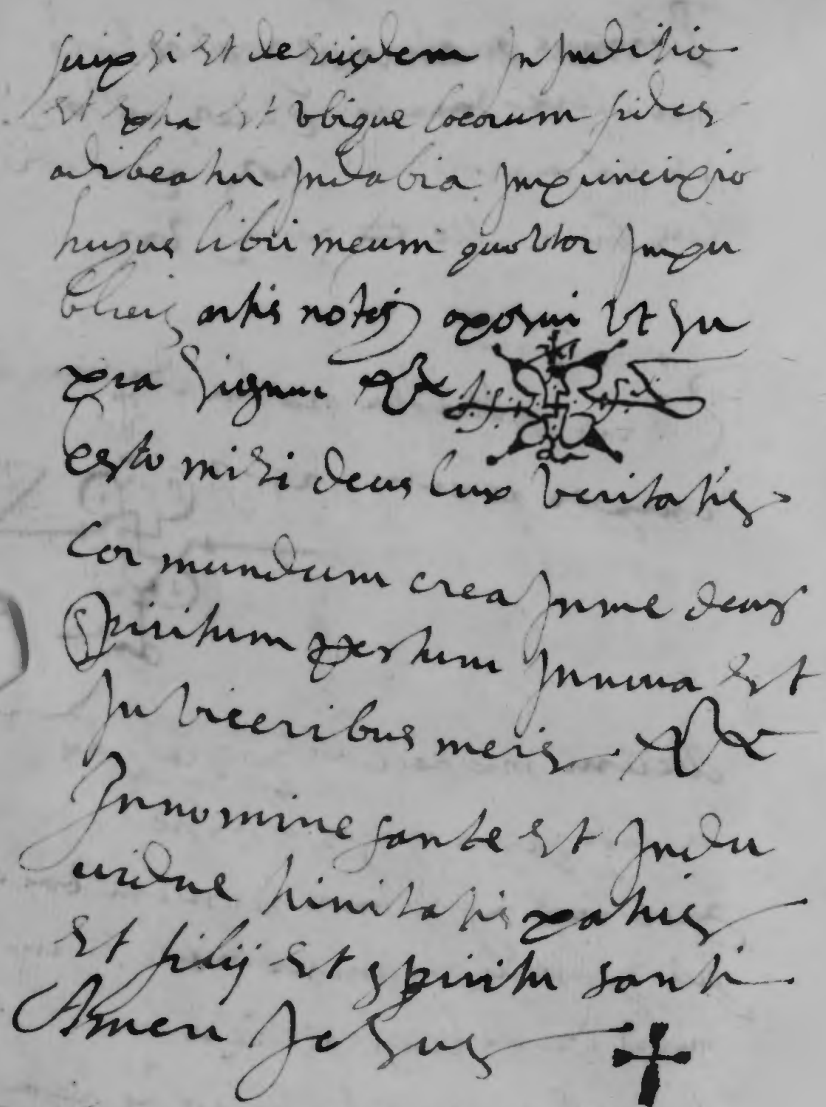 scripsi et de eisdem in juditio
et extra et ubique locorum fides
adibeatur indubia in principio
hujus libri meum quo utor in pu
blicis artis notis aposui ut su
pra signum
esto mihi deus lux veritatis
Cor mundum crea in me deus
spiritum rectum innova et
in visceribus meis
In nomine sante et indi
vidue trinitatis patris
et filij et spiritu santi
Amen Jesus